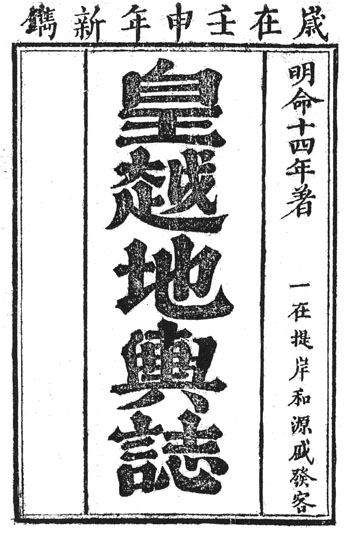 歲在壬申年新鐫
明命十四年著
一在提岸和源盛發客
皇越地輿誌